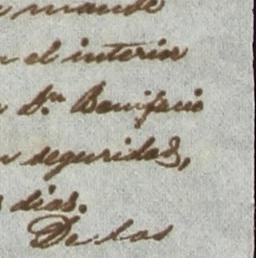 mande
el interior
Dn Bonifacio
seguridad,
dias.
De los